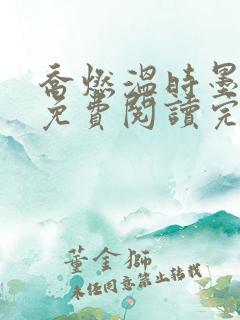 喬燃溫時墨
免費閱讀完
董金獅
未經同意禁止轉載